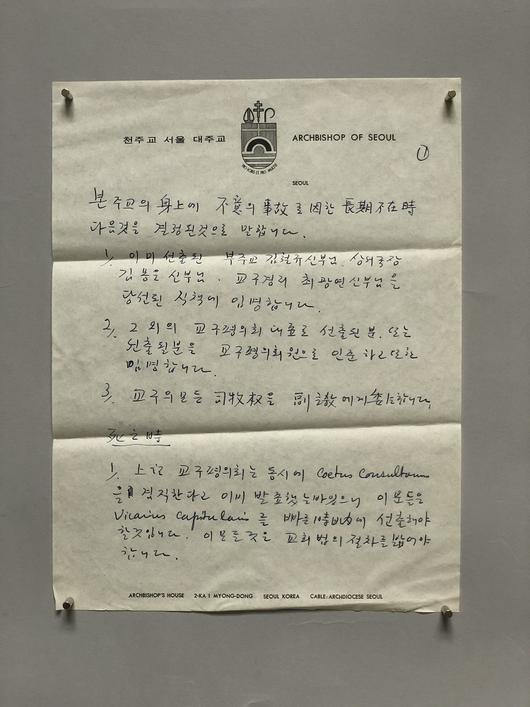 천주교 서울 대주교
ARCHBISHOP OF SEOUL
SEOUL
①
본 주교의 身上에 不意의 事故로 因한 長期不在時
다음것을 결정된것으로 말합니다.
1. 이미 선출된 부주교 신부님, 상서국장
김몽은 신부님, 교구경리 최광연신부님을
당선된 직책에 임명합니다.
2. 그 외의 교구평의회 대표로 선출된 분, 또는
선출될분을 교구평의회원으로 인준하고 또한
임명합니다.
3. 교구의 모든 司牧权을 副主敎에게 委任합니다.
死亡時
1. 上記 교구평의회는 동시에 Coetus Consultorum
을 겸직한다고 이미 발표했는바있으니 이분들은
Vicarius Capitularis를 빠른 에 선출해야
할것입니다. 이 모든것은 교회법의 절차를 밟어야
합니다.
ARCHBISHOP'S HOUSE 2-KA 1 MYONG-DONG SEOUL KOREA CABLE: ARCHDIOCESE SEOUL